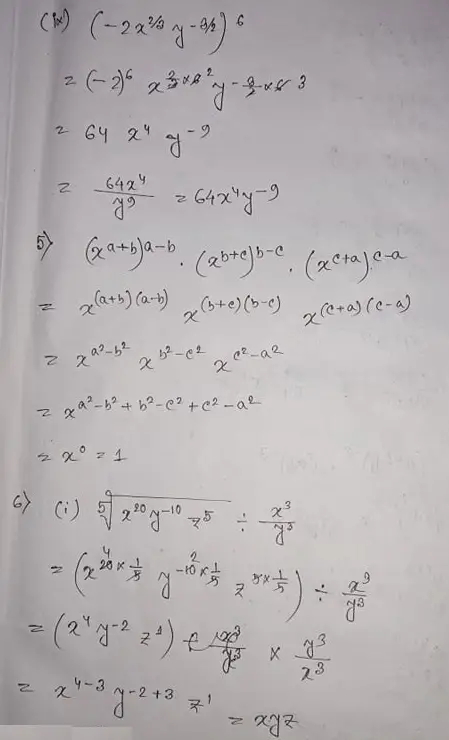 (ix) (-2x^{2/3} y^{-3/2})^6
= (-2)^6 x^{2/3 × 6 2} y^{-3/2 × 6 3}
= 64 x^4 y^{-9}
= 64x^4/y^9 = 64x^4y^{-9}
5) (x^{a+b})^{a-b} . (x^{b+c})^{b-c} . (x^{c+a})^{c-a}
= x^{(a+b)(a-b)} x^{(b+c)(b-c)} x^{(c+a)(c-a)}
= x^{a²-b²} x^{b²-c²} x^{c²-a²}
= x^{a²-b²+b²-c²+c²-a²}
= x^0 = 1
6) (i) ⁵√(x^{20}y^{-10} z^5) ÷ x³/y³
= (x^{20 4 × 1/5} y^{-10 2 × 1/5} z^{5 × 1/5}) ÷ x³/y³
= (x^4 y^{-2} z^1) x³/y³ × y³/x³
= x^{4-3} y^{-2+3} z^1 = xyz